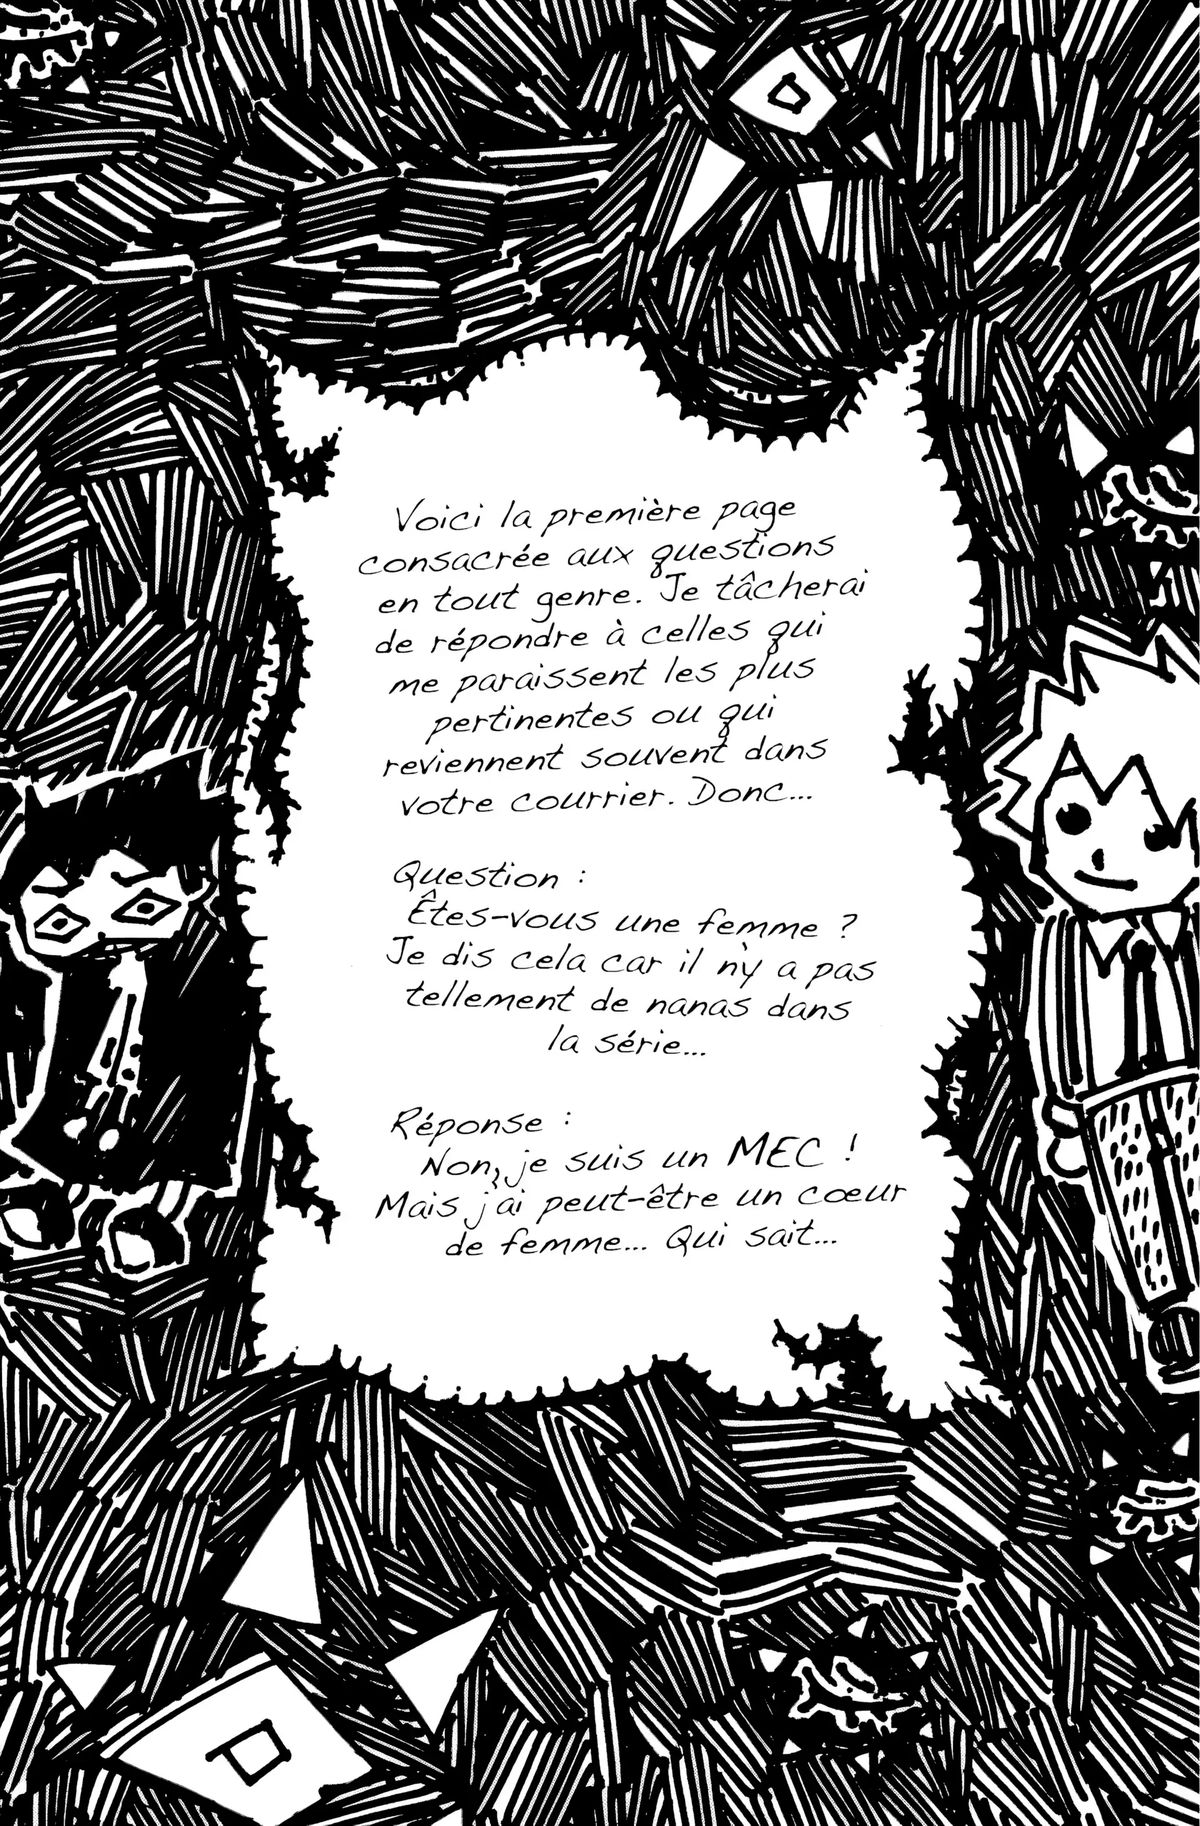 Voici la première page
consacrée aux questions
en tout genre. Je tâcherai
de répondre à celles qui
me paraissent les plus
pertinentes ou qui
reviennent souvent dans
votre courrier. Donc...
Question :
Êtes-vous une femme ?
Je dis cela car il n'y a pas
tellement de nanas dans
la série...
Réponse :
Non, je suis un MEC !
Mais j'ai peut-être un coeur
de femme... Qui sait...